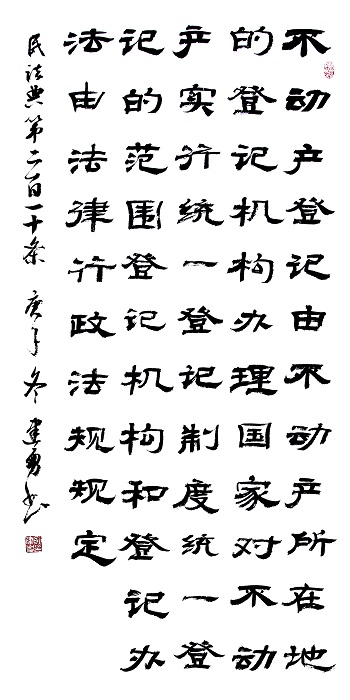 不动产登记由不动产所在地
的登记机构办理国家对不动
产实行统一登记制度统一登
记的范围登记机构和登记办
法由法律行政法规规定
民法典第二百一十条 庚子冬 建勇书